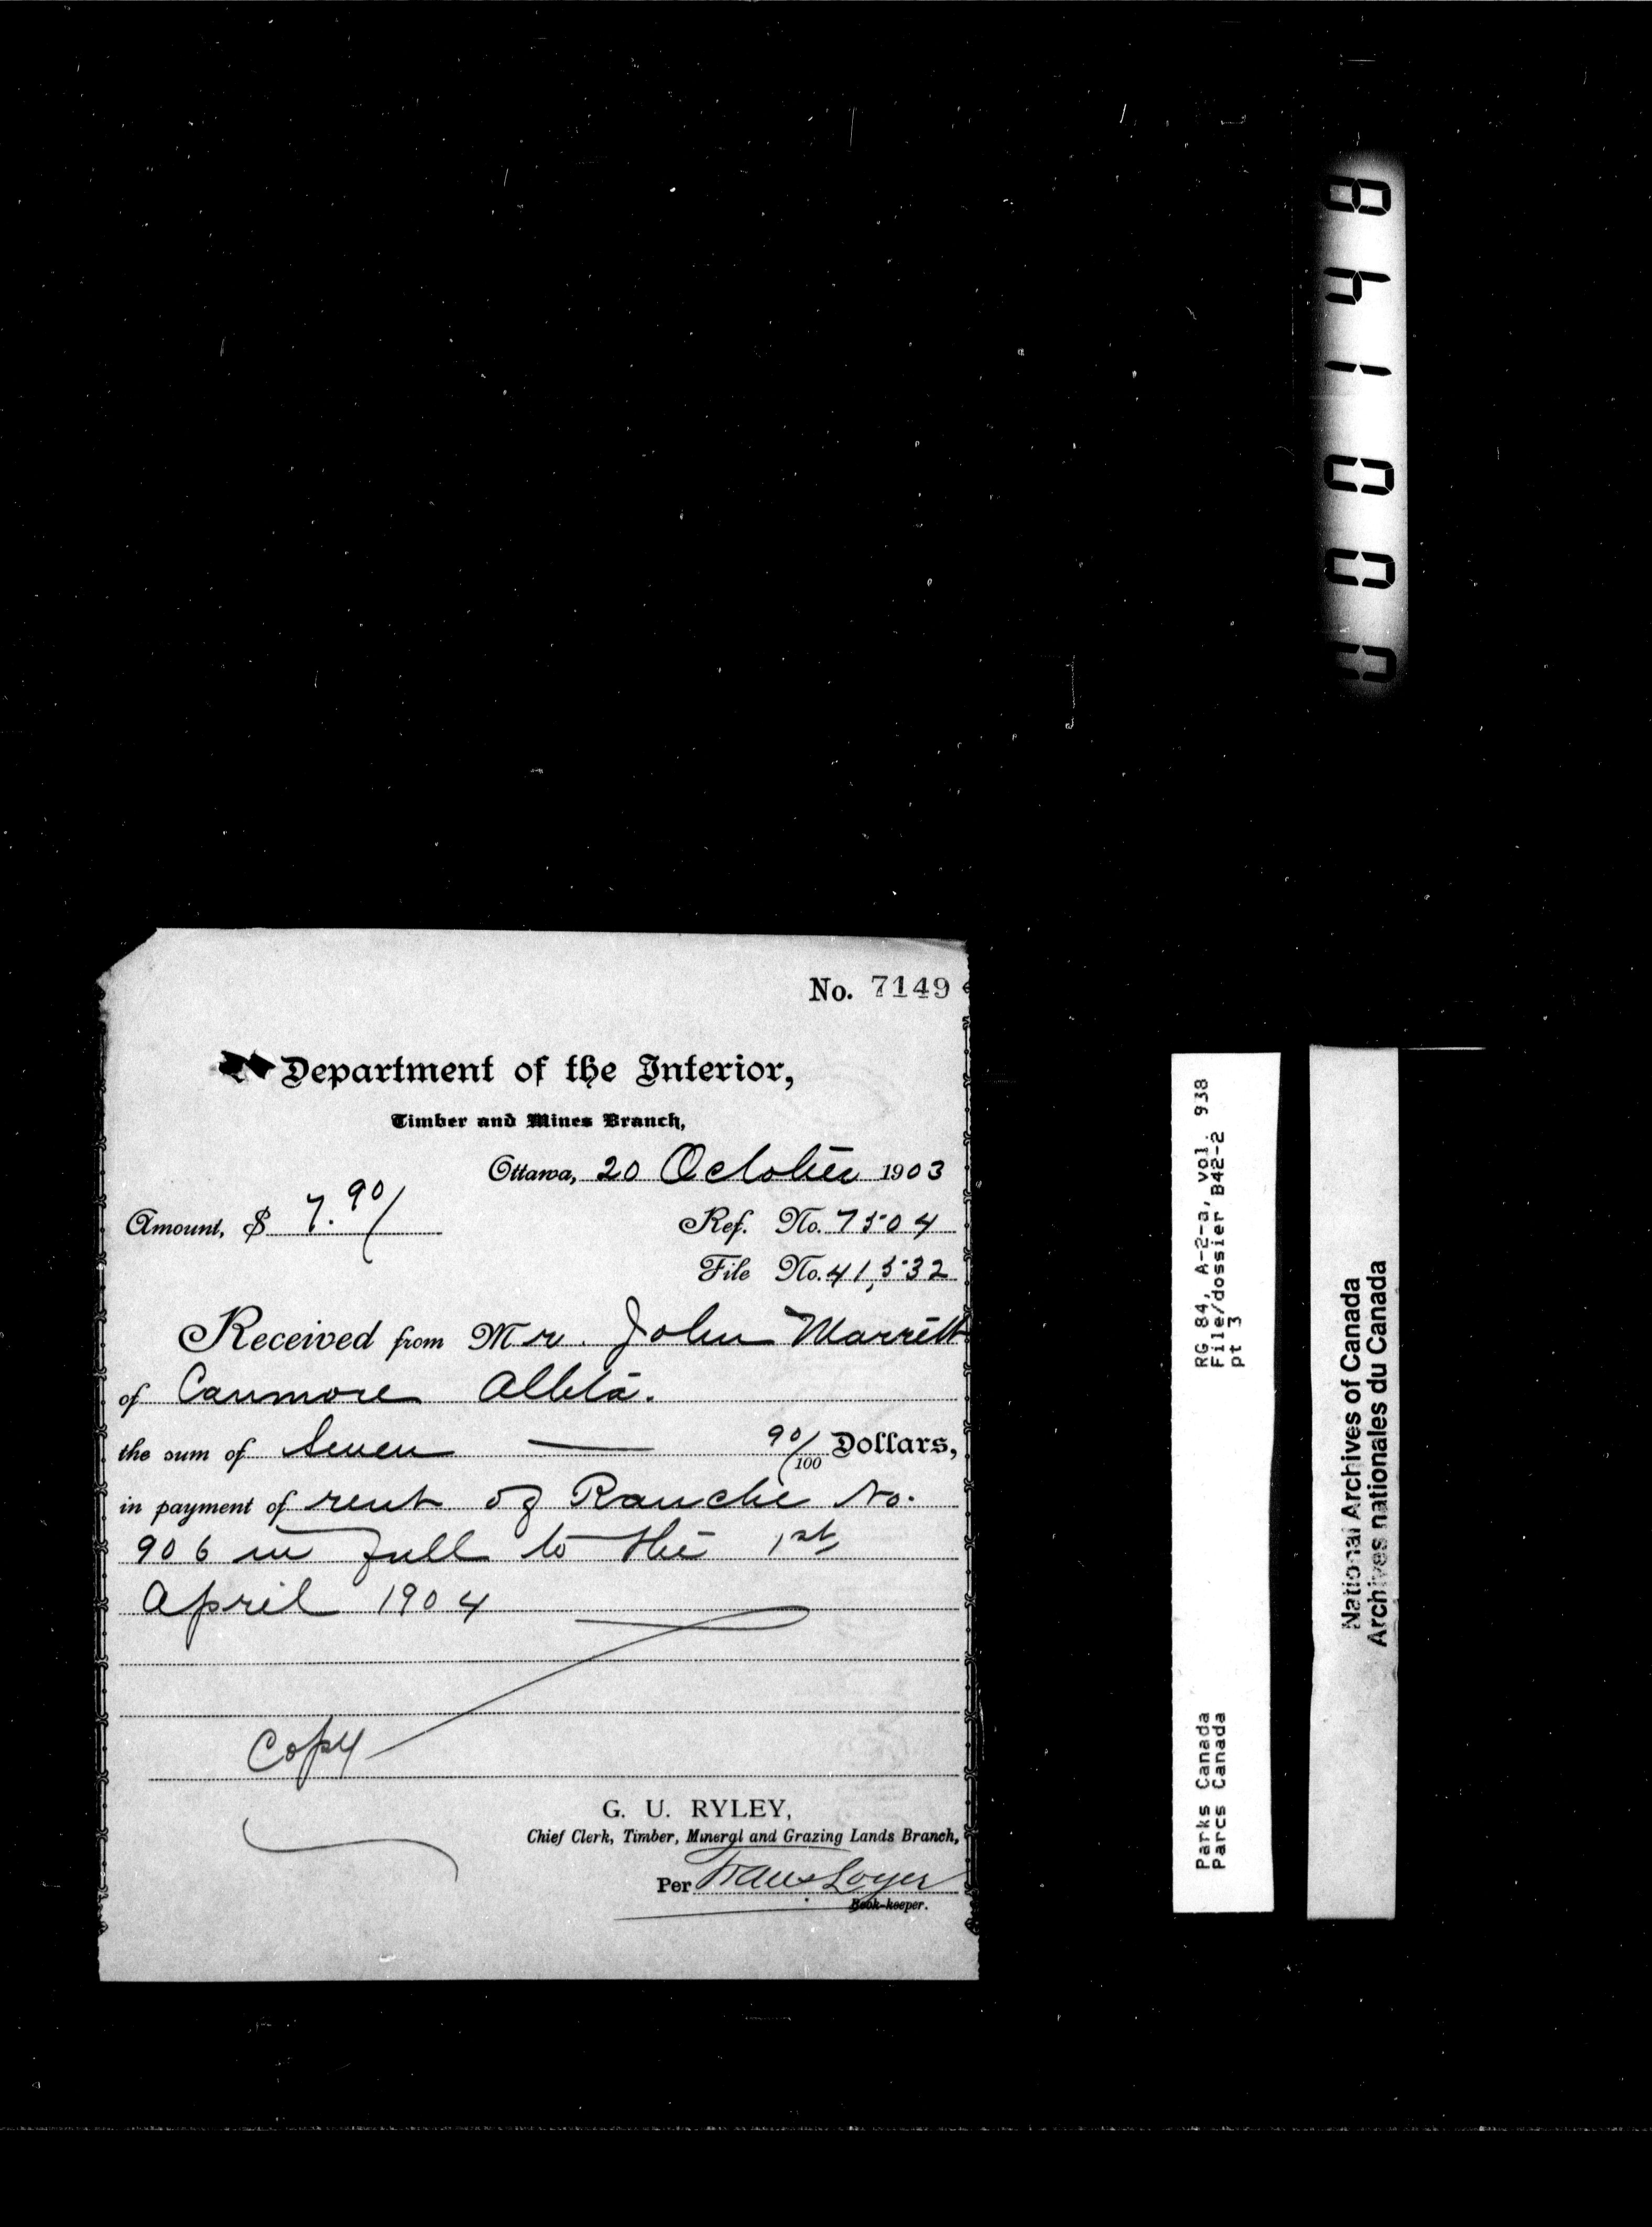 No. 7149
Department of the Interior,
Timber and Mines Branch,
Ottawa, 20 October 1903
Amount, $ 7.90/
Ref. No. 7504
File No. 41,532
Received from Mr. John Marrett
of Canmore Alberta.
the sum of Seven — 90/100 Dollars,
in payment of rent of Ranche No.
906 in full to the 1st
April 1904
Copy
G. U. RYLEY,
Chief Clerk, Timber, Mineral and Grazing Lands Branch,
Per Loyer
Book-keeper.
000148
RG 84, A-2-a, vol. 938
File/dossier B42-2
pt 3
Parks Canada
Parcs Canada
National Archives of Canada
Archives nationales du Canada